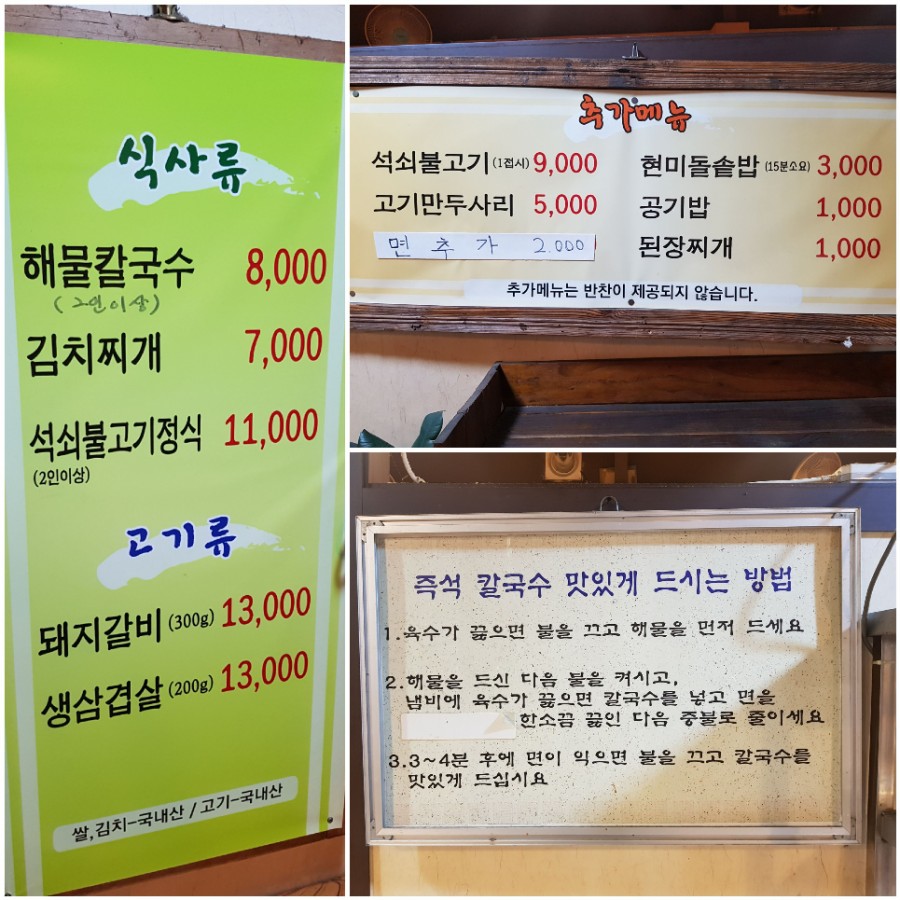 식사류
해물칼국수 8,000
(2인이상)
김치찌개 7,000
석쇠불고기정식 11,000
(2인이상)
고기류
돼지갈비 (300g) 13,000
생삼겹살 (200g) 13,000
쌀,김치-국내산 / 고기-국내산
추가메뉴
석쇠불고기 (1접시) 9,000
고기만두사리 5,000
면 추가 2.000
현미돌솥밥 (15분소요) 3,000
공기밥 1,000
된장찌개 1,000
추가메뉴는 반찬이 제공되지 않습니다.
즉석 칼국수 맛있게 드시는 방법
1.육수가 끓으면 불을 끄고 해물을 먼저 드세요
2.해물을 드신 다음 불을 켜시고,
냄비에 육수가 끓으면 칼국수를 넣고 면을
한소끔 끓인 다음 중불로 줄이세요
3.3~4분 후에 면이 익으면 불을 끄고 칼국수를
맛있게 드십시요